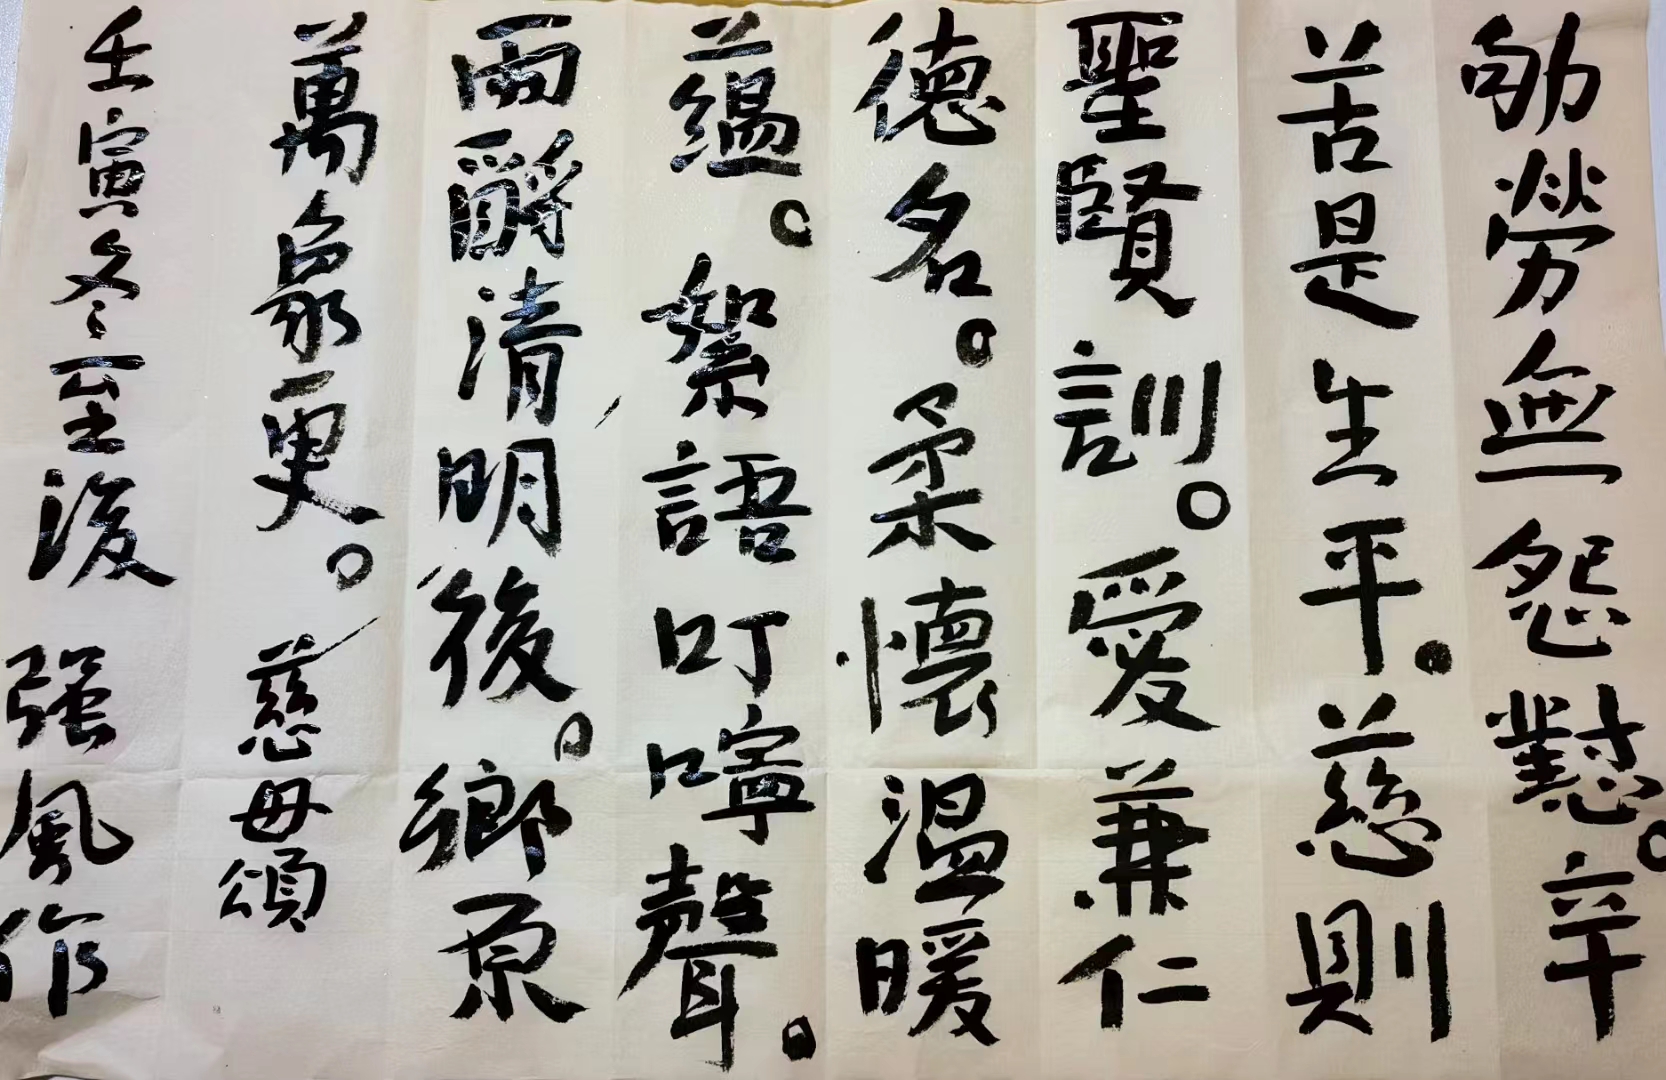 劬勞無怨懟。辛
苦是生平。慈則
聖賢訓。愛兼仁
德名。柔懷溫暖
蘊。絮語叮嚀聲。
雨爵清明後。鄉原
萬象更。慈母頌
壬寅冬至後 强風作